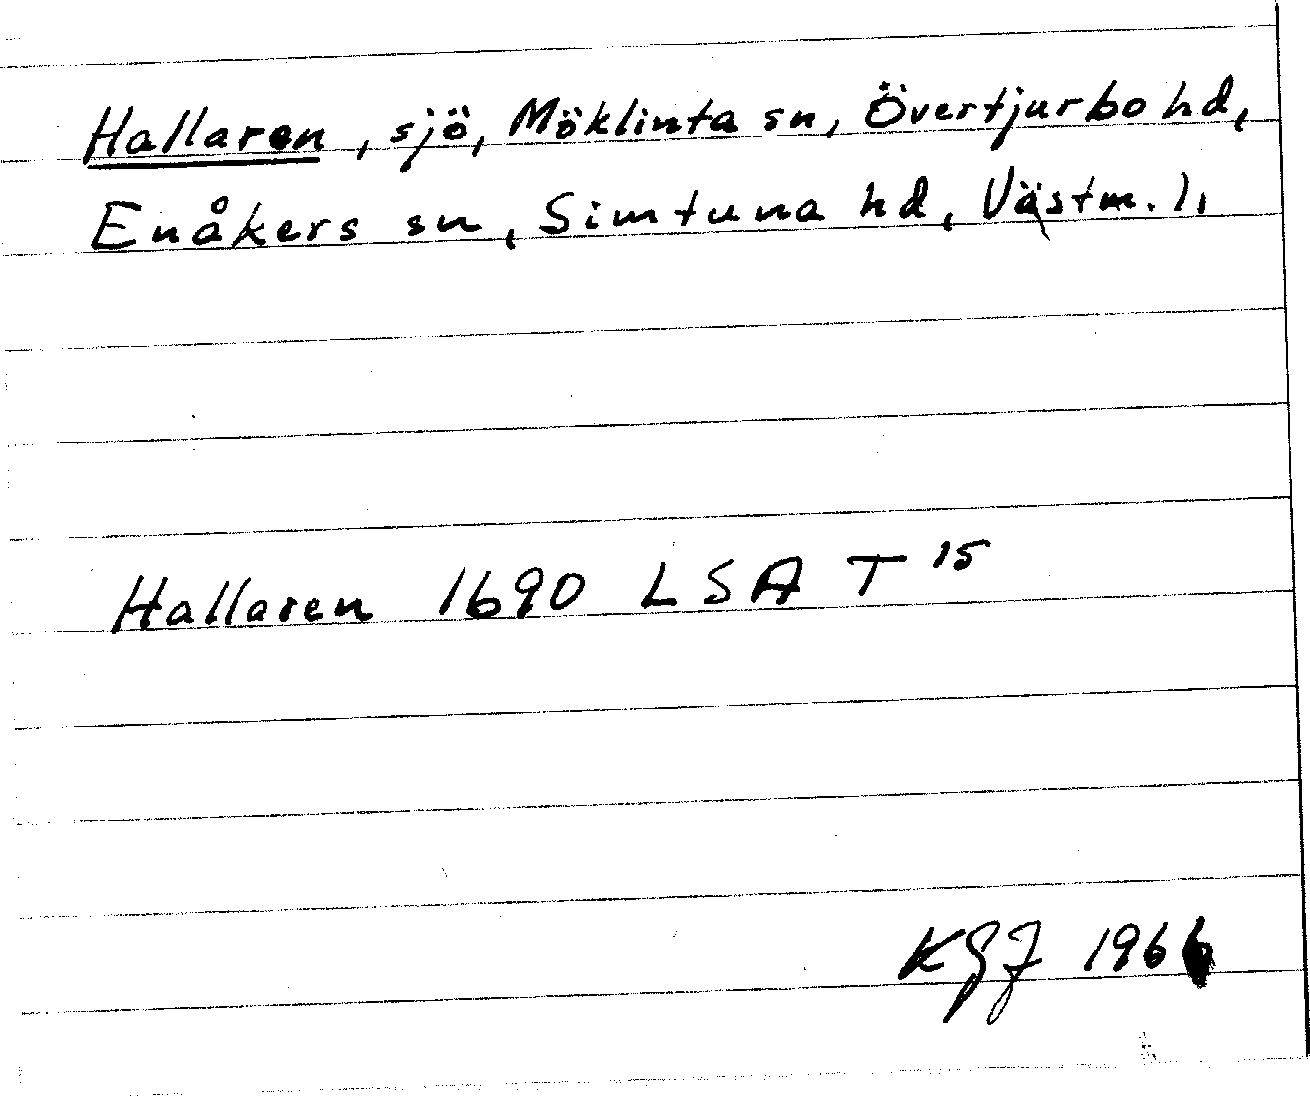 Hallaren, sjö, Möklinta sn, Övertjurbo hd,
Enåkers sn, Simtuna hd, Västm. l.
Hallaren 1690 LSA T 15
KGJ 1966